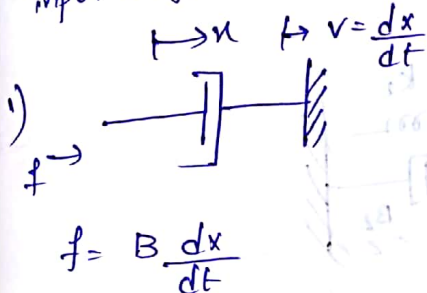 ↦x ↦ v = dx/dt
1)
f →
f = B dx/dt